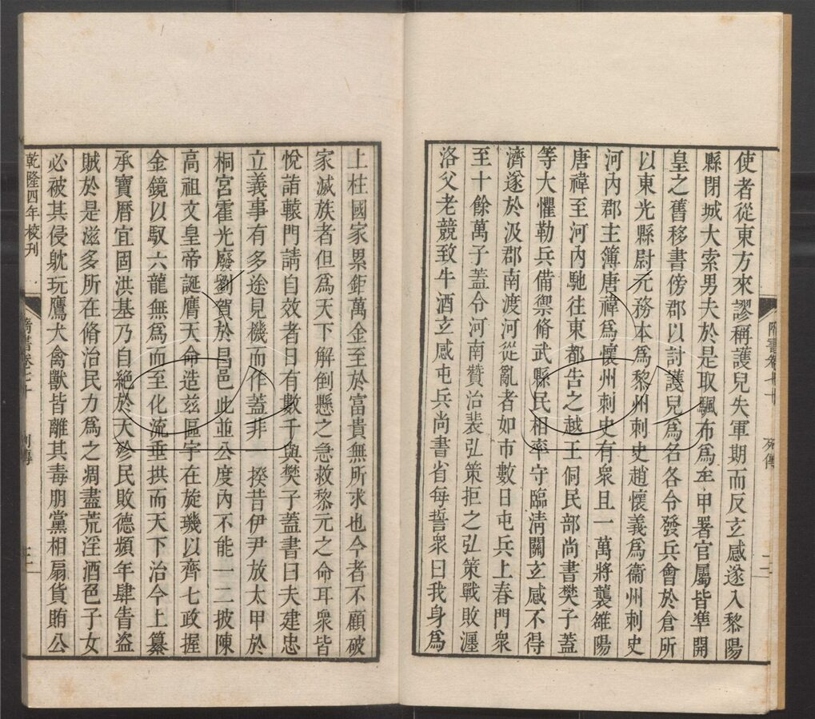 隋書卷七十 列傳 二
使者從東方來謬稱護兒失軍期而反玄感遂入黎陽
縣閉城大索男夫於是取颿布爲牟甲署官屬皆準開
皇之舊移書傍郡以討護兒爲名各令發兵會於倉所
以東光縣尉元務本爲黎州刺史趙懷義爲衞州刺史
河內郡主簿唐禕爲懷州刺史有衆且一萬將襲雒陽
唐禕至河內馳往東都告之越王侗民部尚書樊子蓋
等大懼勒兵備禦脩武縣民相率守臨清關玄感不得
濟遂於汲郡南渡河從亂者如市數日屯兵上春門衆
至十餘萬子蓋令河南贊治裴弘策拒之弘策戰敗瀍
洛父老競致牛酒玄感屯兵尚書省每誓衆曰我身爲
上柱國家累鉅萬金至於富貴無所求也今者不顧破
家滅族者但爲天下解倒懸之急救黎元之命耳衆皆
悅詣轅門請自效者日有數千與樊子蓋書曰夫建忠
立義事有多途見機而作蓋非一揆昔伊尹放太甲於
桐宮霍光廢劉賀於昌邑此並公度內不能一二披陳
高祖文皇帝誕膺天命造茲區宇在旋璣以齊七政握
金鏡以馭六龍無爲而至化流垂拱而天下治今上纂
承寶曆宜固洪基乃自絕於天殄民敗德頻年肆眚盜
賊於是滋多所在脩治民力爲之凋盡荒淫酒色子女
必被其侵躭玩鷹犬禽獸皆離其毒朋黨相扇貨賄公
乾隆四年校刊 隋書卷七十 列傳 三